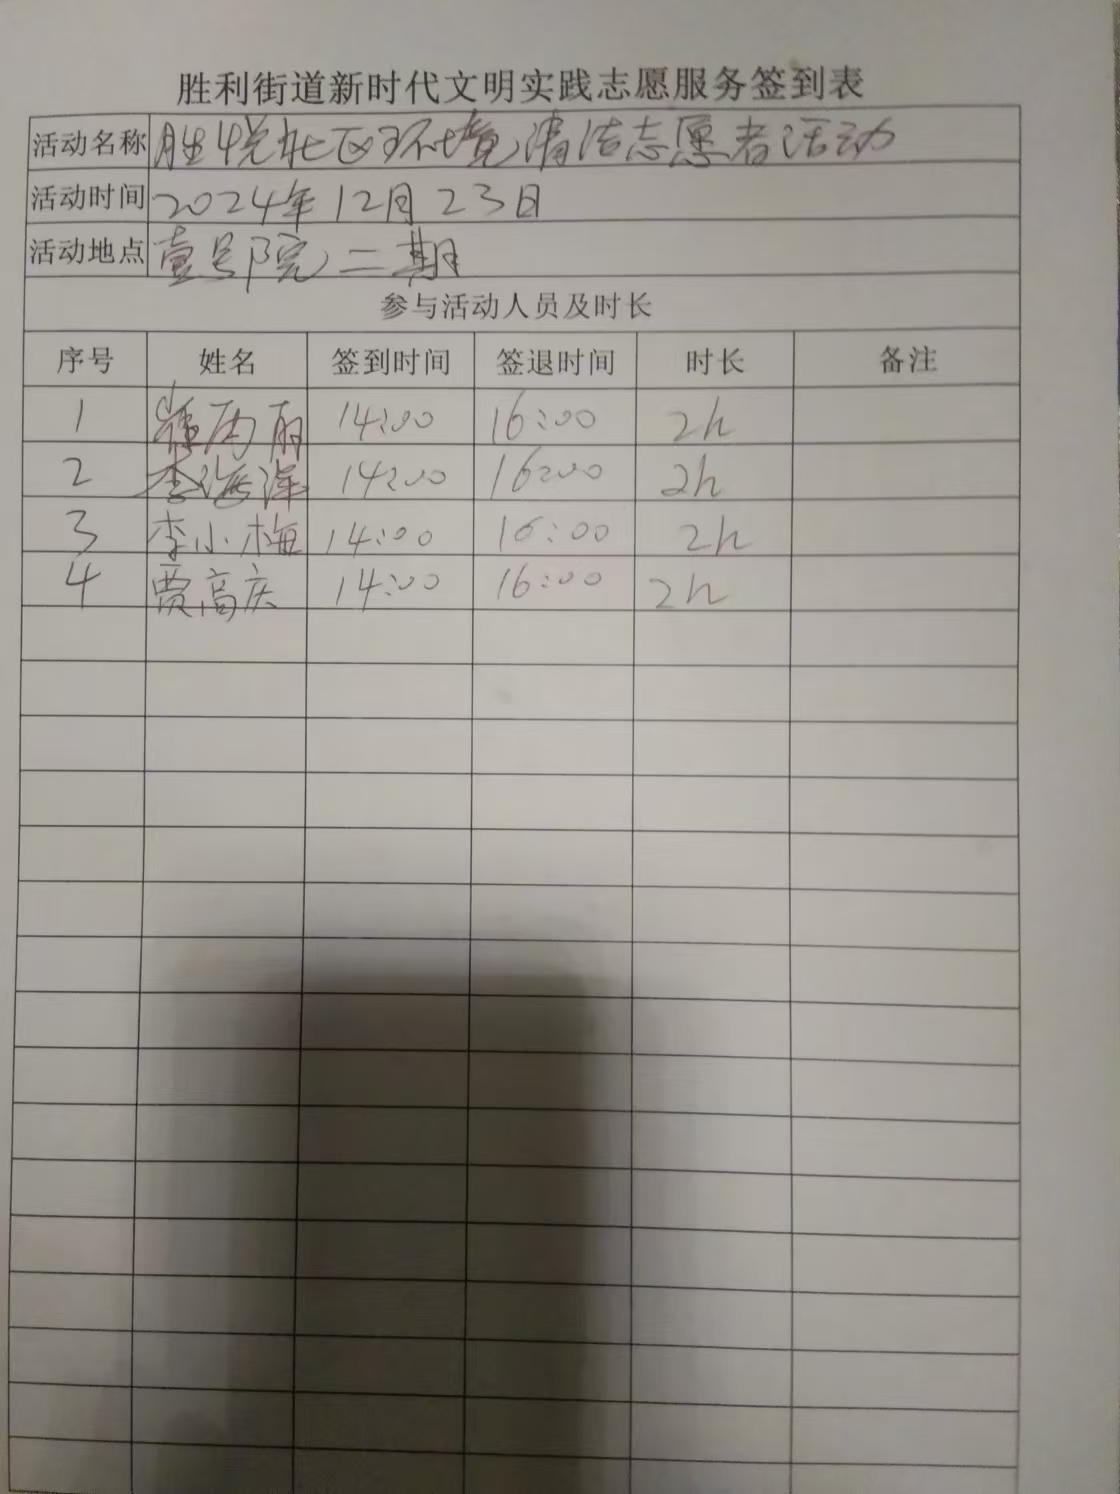 胜利街道新时代文明实践志愿服务签到表
活动名称 胜悦社区环境清洁志愿者活动
活动时间 2024年12月23日
活动地点 壹号院二期
参与活动人员及时长
序号 姓名 签到时间 签退时间 时长 备注
1 14:00 16:00 2h
2 李海洋 14:00 16:00 2h
3 李小梅 14:00 16:00 2h
4 贾高庆 14:00 16:00 2h